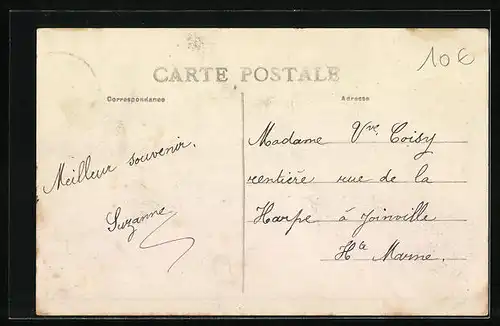 10€
CARTE POSTALE
Correspondance
Adresse
Meilleur souvenir.
Suzanne
Madame Vve Coisy
rentière rue de la
Harpe à Joinville
Hte Marne.